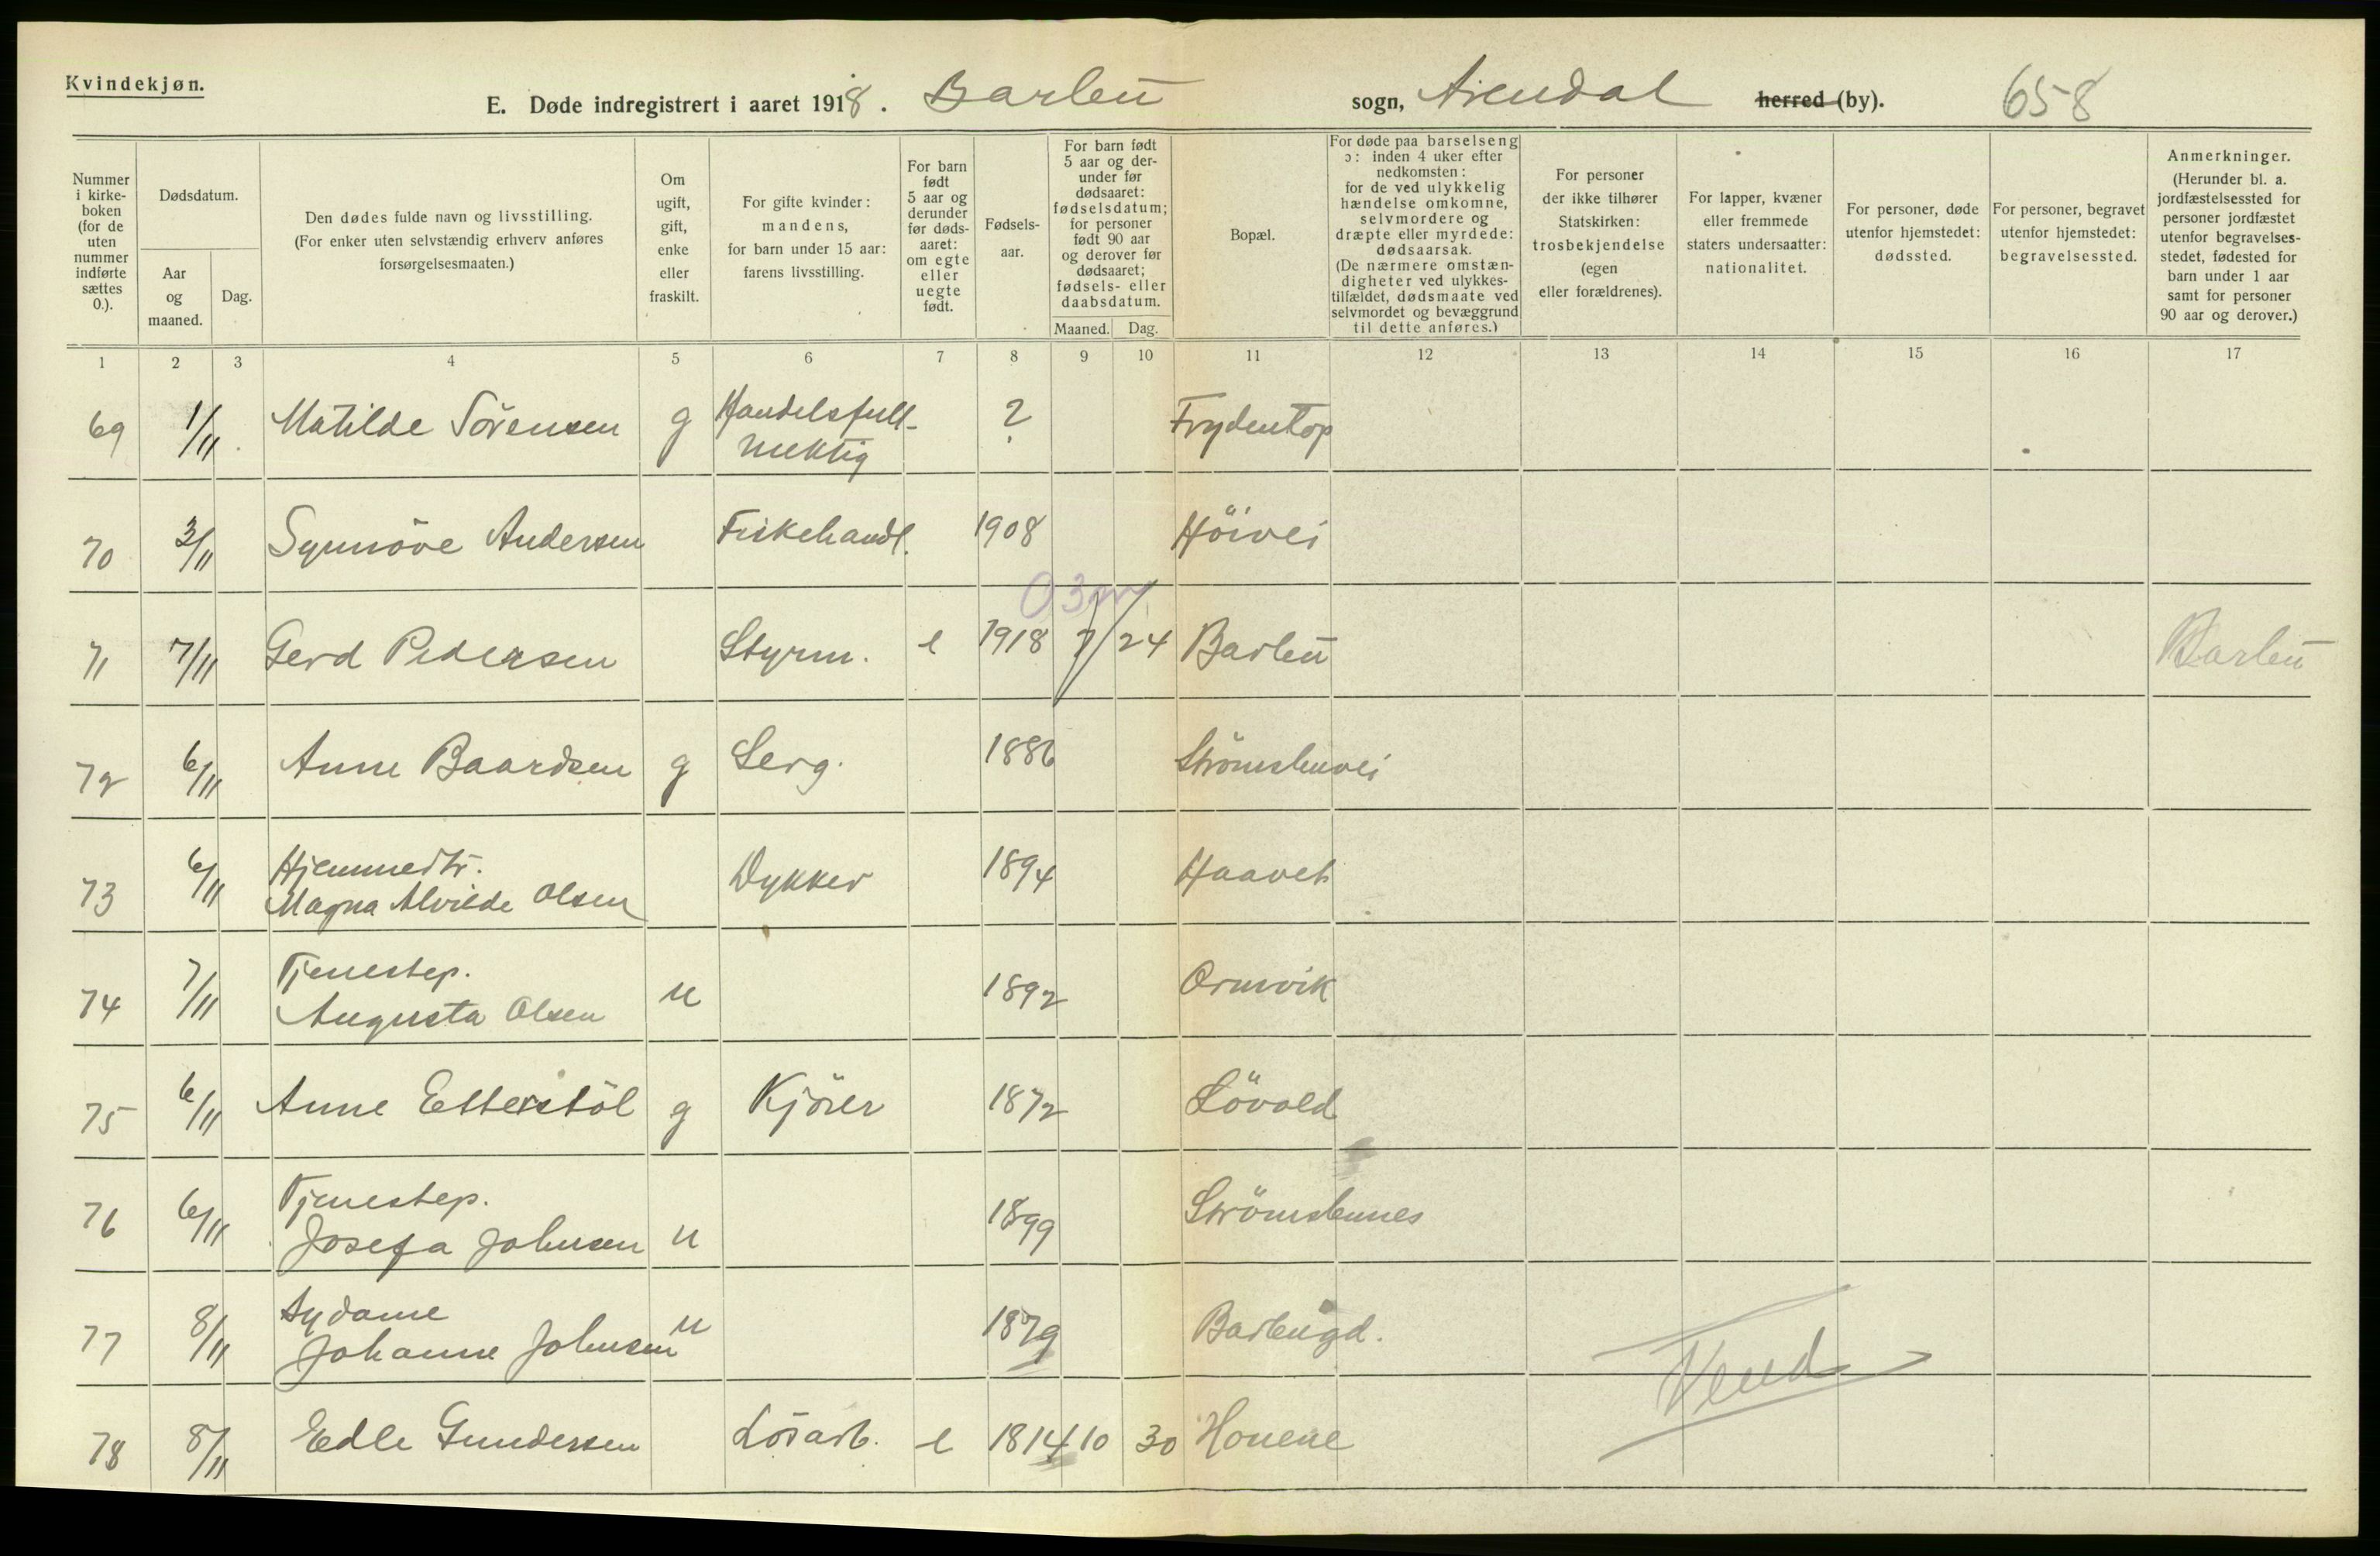 Kvindekjøn.
E. Døde indregistrert i aaret 1918. Barbu sogn, Arendal herred (by). 658
Nummer i kirke-boken (for de uten nummer indførte sættes 0.).
Dødsdatum.
Aar og maaned.
Dag.
Den dødes fulde navn og livsstilling. (For enker uten selvstændig erhverv anføres forsørgelsesmaaten.)
Om ugift, gift, enke eller fraskilt.
For gifte kvinder: mandens, for barn under 15 aar: farens livsstilling.
For barn født 5 aar og derunder før døds-aaret: om egte eller uegte født.
Fødsels-aar.
For barn født 5 aar og der-under før dødsaaret: fødselsdatum; for personer født 90 aar og derover før dødsaaret; fødsels- eller daabsdatum.
Maaned. Dag.
Bopæl.
For døde paa barselseng ɔ: inden 4 uker efter nedkomsten: for de ved ulykkelig hændelse omkomne, selvmordere og dræpte eller myrdede: dødsaarsak. (De nærmere omstæn-digheter ved ulykkes-tilfældet, dødsmaate ved selvmordet og bevæggrund til dette anføres.)
For personer der ikke tilhører Statskirken: trosbekjendelse (egen eller forældrenes).
For lapper, kvæner eller fremmede staters undersaatter: nationalitet.
For personer, døde utenfor hjemstedet: dødssted.
For personer, begravet utenfor hjemstedet: begravelsessted.
Anmerkninger. (Herunder bl. a. jordfæstelsessted for personer jordfæstet utenfor begravelses-stedet, fødested for barn under 1 aar samt for personer 90 aar og derover.)
1 2 3 4 5 6 7 8 9 10 11 12 13 14 15 16 17
69 1/11 Matilde Sörensen g Handelsfull-mektig ? Frydentop
70 3/11 Synnöve Andersen Fiskehandl. 1908 Höivei
0 3 m
71 7/11 Gerd Pedersen Styrm. e 1918 7/24 Barbu Barbu
72 6/11 Anne Baardsen g Serg. 1886 Strömsbuvei
73 6/11 Hjemmedtr. Magna Alvilde Olsen Dykker 1894 Haavet
74 7/11 Tjenestep. Augusta Olsen u 1892 Ormvik
75 6/11 Anne Etterstöl g Kjörer 1872 Lövold
76 6/11 Tjenestep. Josefa Johnsen u 1899 Strömsbunes
77 8/11 Sydame Johanne Johnsen u 1879 Barbugd.
Vend
78 8/11 Edle Gundersen Lösarb. e 1814 10 30 Houene